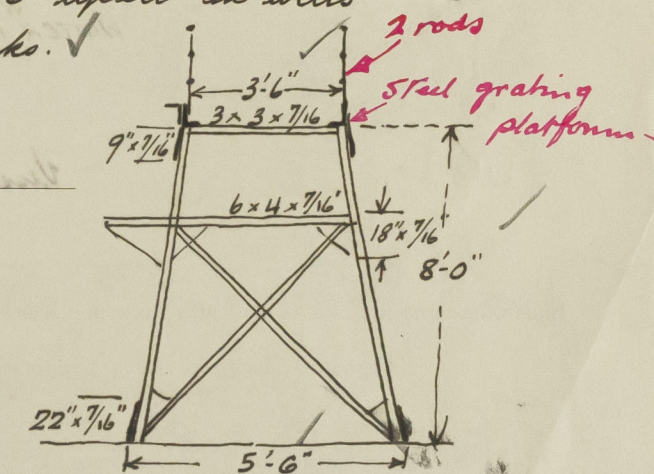 ks. ✓
2 rods
3'-6"
3 x 3 x 7/16
Steel grating
platform -
9" x 7/16"
6 x 4 x 7/16"
18" x 7/16"
8'-0"
22" x 7/16"
5'-6"